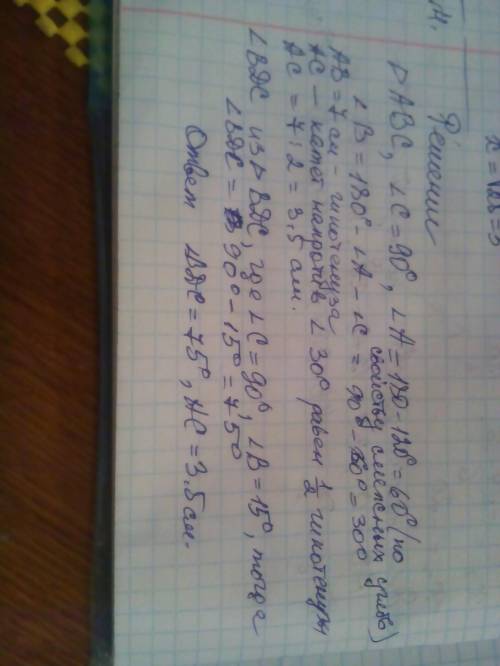 х =
Решение
△ ABC, ∠C = 90°, ∠A = 180-120° = 60° (по
свойству смежных углов)
∠B = 180° - ∠A - ∠C = 90° - 60° = 30°
AB = 7 см - гипотенуза
AC - катет напротив ∠ 30° равен 1/2 гипотенузы
AC = 7 : 2 = 3,5 см.
∠BDC из △ BDC, где ∠C = 90°, ∠B = 15°, тогда
∠BDC = 90° - 15° = 75°
Ответ ∠BDC = 75°, AC = 3.5 см.